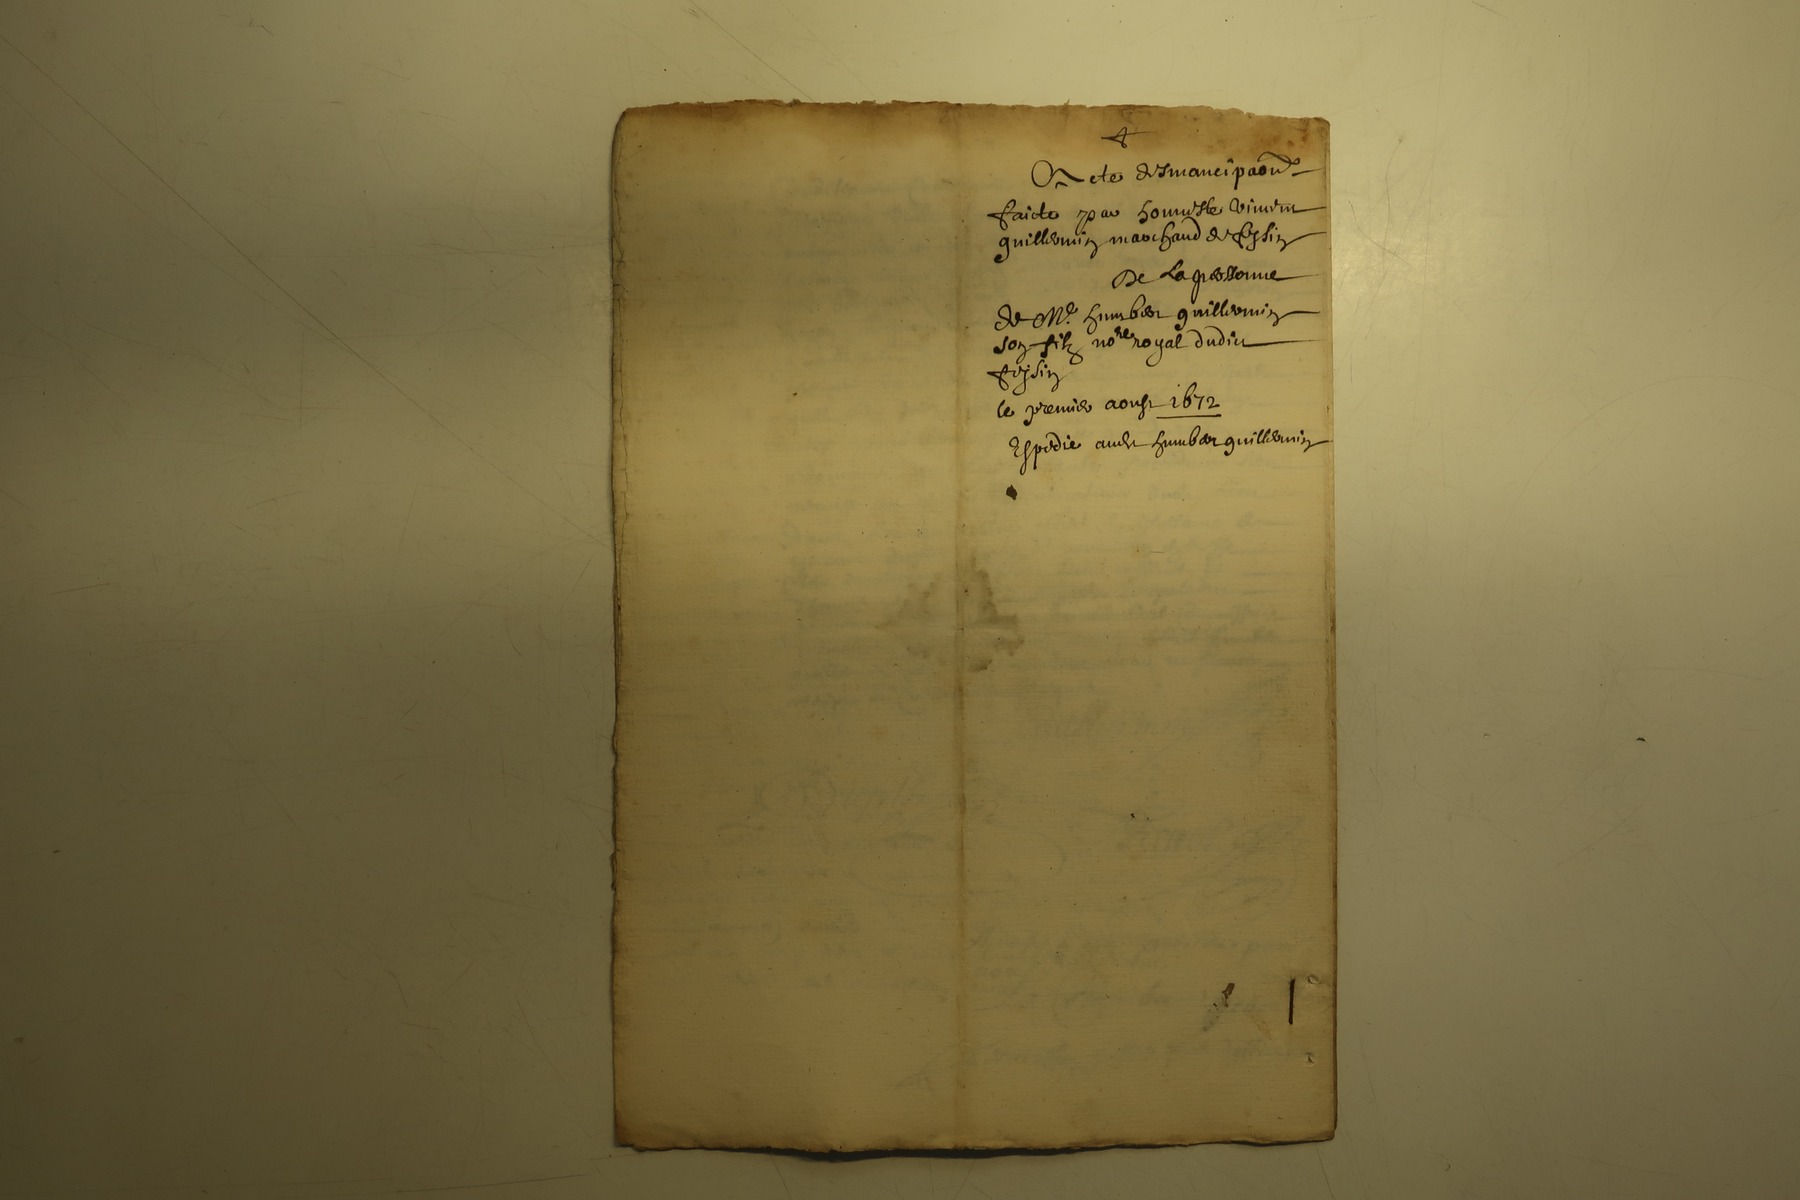 Acte d'Emancipaõn
faicte par honneste vincent
guillermin marchand de feysin
De La personne
de Me humbert guillermin
son filz nore royal dudict
feysin
le premier aoust 1672
Expedie audt humbert guillermin